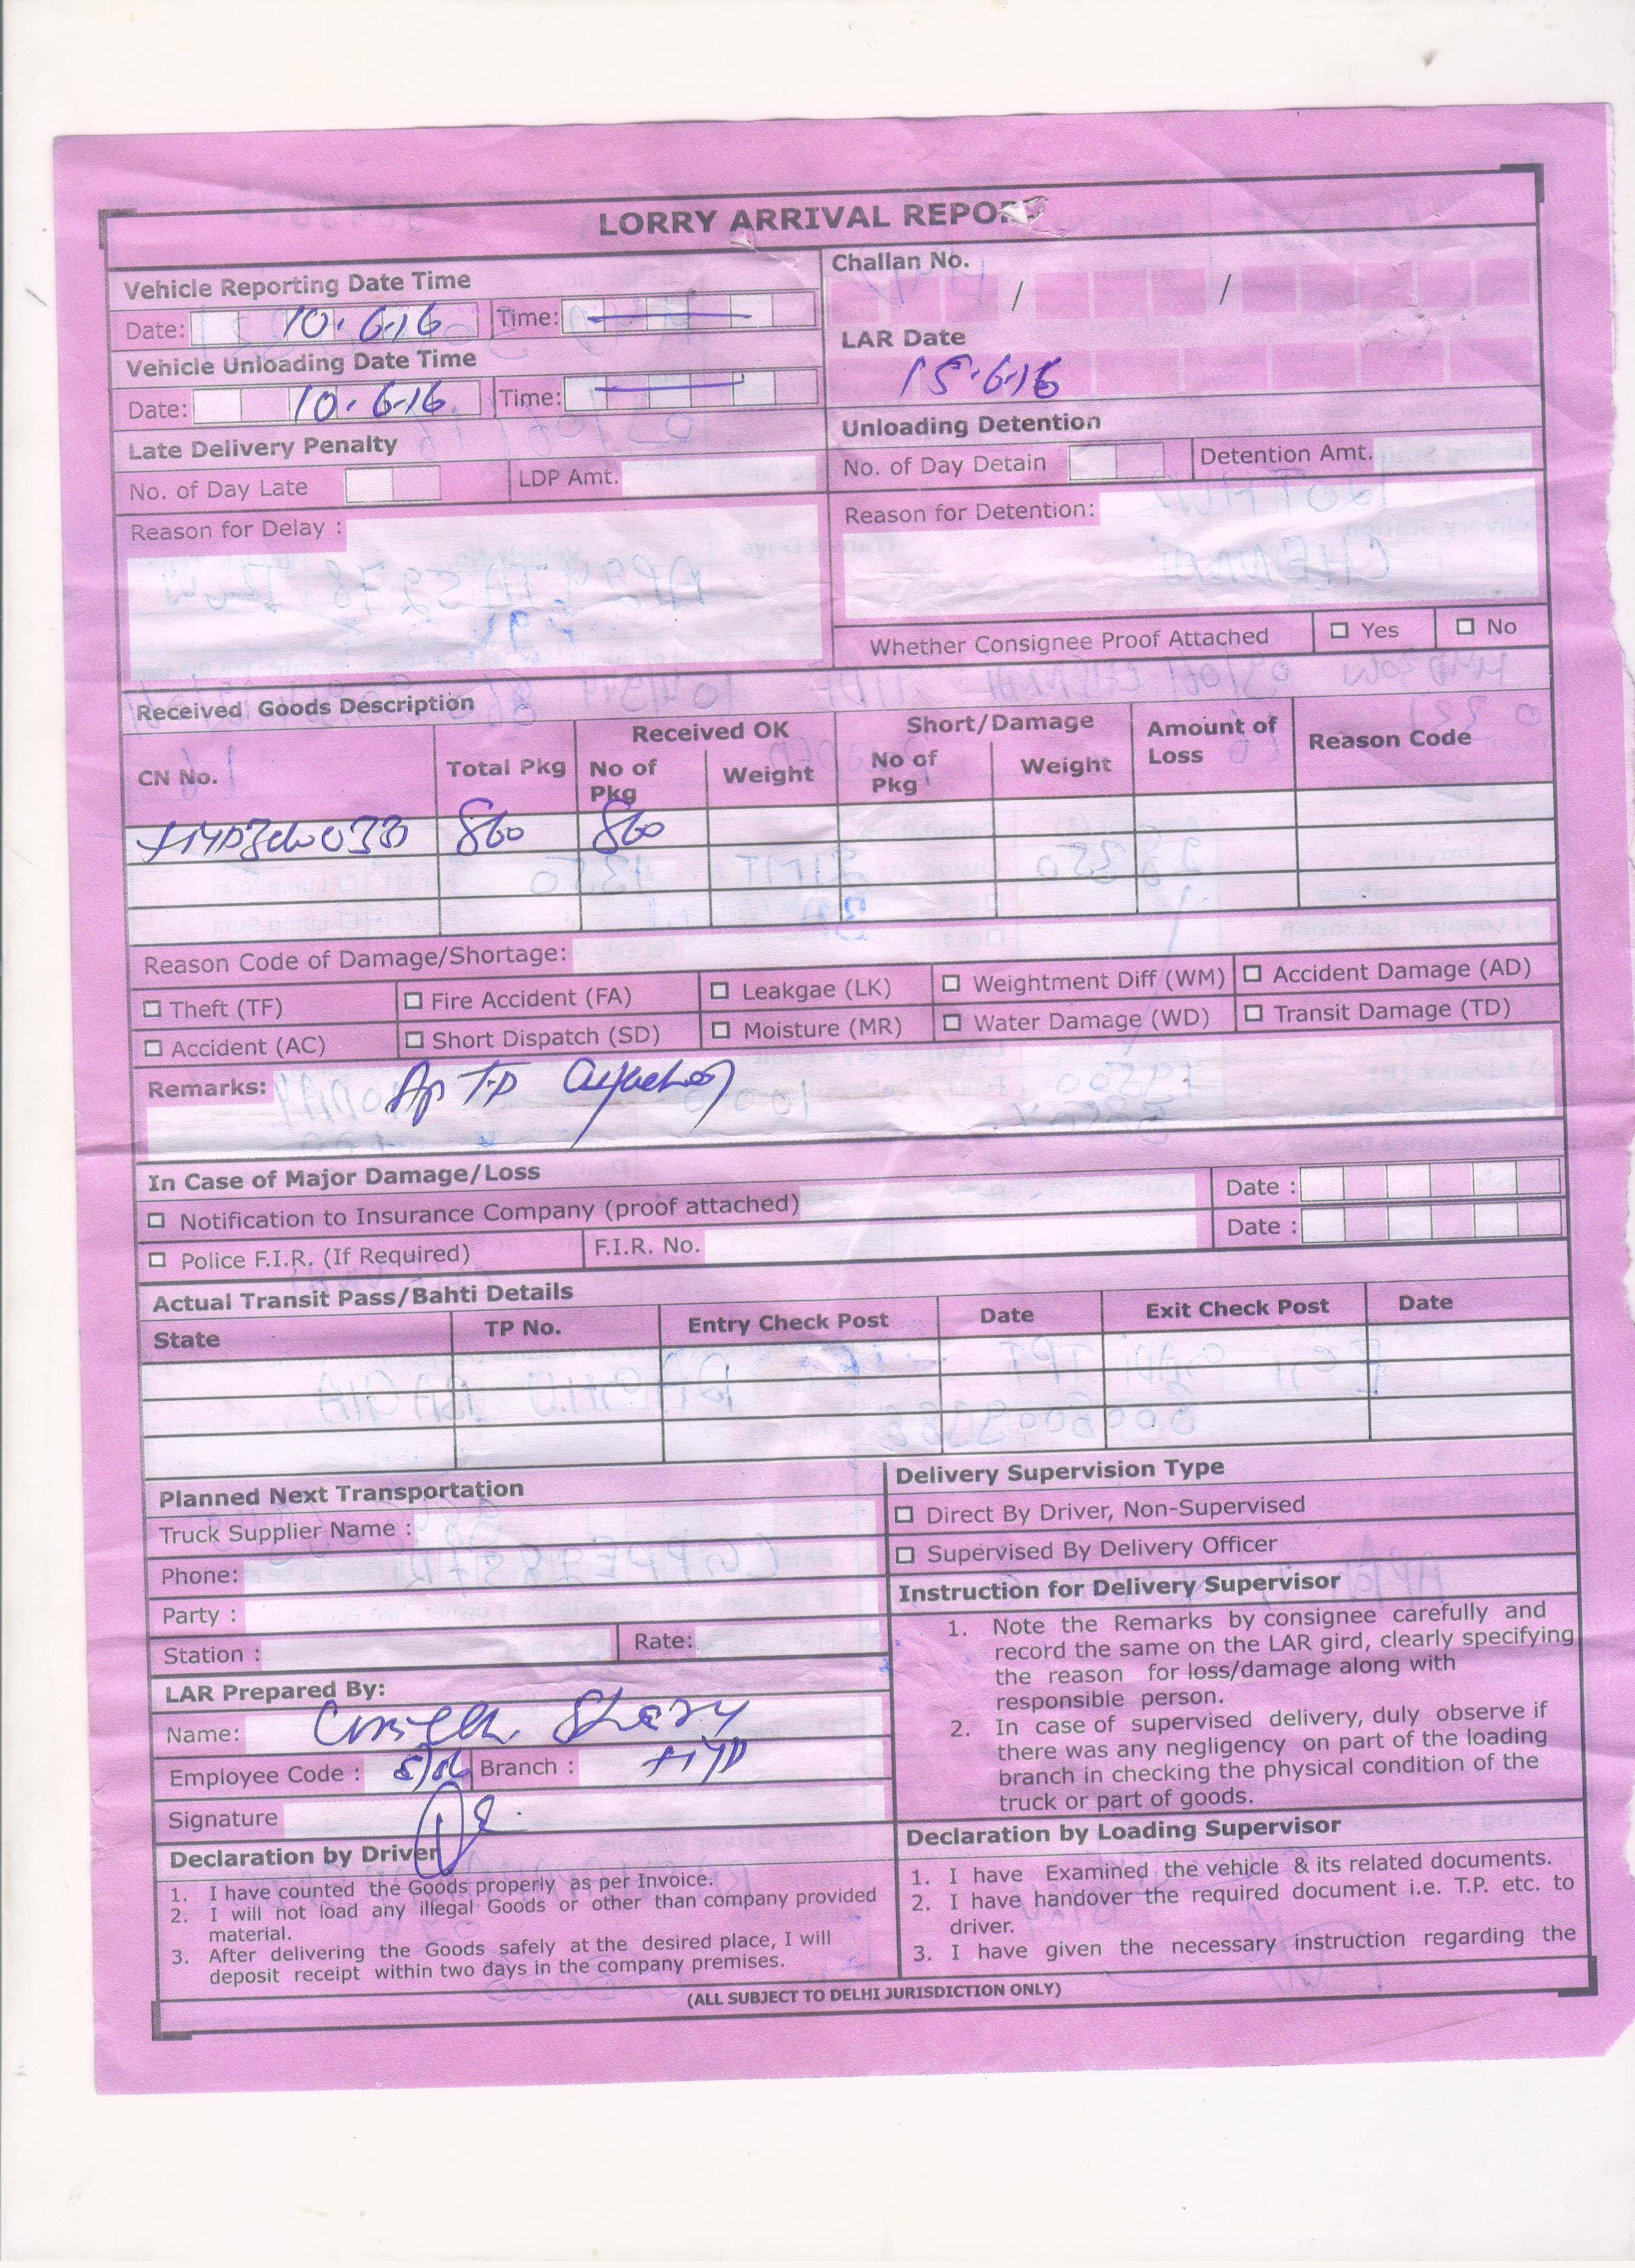 LORRY ARRIVAL REPOR
Vehicle Reporting Date Time
Date: 10.6.16 Time:
Vehicle Unloading Date Time
Date: 10.6.16 Time:
Late Delivery Penalty
No. of Day Late LDP Amt.
Reason for Delay :
Challan No.
/ /
LAR Date
15.6.16
Unloading Detention
No. of Day Detain Detention Amt.
Reason for Detention:
Whether Consignee Proof Attached Yes No
Received Goods Description
CN No. Total Pkg Received OK Short/Damage Amount of Loss Reason Code
No of Pkg Weight No of Pkg Weight
860 860
Reason Code of Damage/Shortage:
Theft (TF) Fire Accident (FA) Leakgae (LK) Weightment Diff (WM) Accident Damage (AD)
Accident (AC) Short Dispatch (SD) Moisture (MR) Water Damage (WD) Transit Damage (TD)
Remarks: Ap TP
In Case of Major Damage/Loss
Notification to Insurance Company (proof attached) Date :
Police F.I.R. (If Required) F.I.R. No. Date :
Actual Transit Pass/Bahti Details
State TP No. Entry Check Post Date Exit Check Post Date
Planned Next Transportation
Truck Supplier Name :
Phone:
Party :
Station : Rate:
LAR Prepared By:
Name:
Employee Code : Branch : HYD
Signature
Declaration by Driver
1. I have counted the Goods properly as per Invoice.
2. I will not load any illegal Goods or other than company provided
material.
3. After delivering the Goods safely at the desired place, I will
deposit receipt within two days in the company premises.
Delivery Supervision Type
Direct By Driver, Non-Supervised
Supervised By Delivery Officer
Instruction for Delivery Supervisor
1. Note the Remarks by consignee carefully and
record the same on the LAR gird, clearly specifying
the reason for loss/damage along with
responsible person.
2. In case of supervised delivery, duly observe if
there was any negligency on part of the loading
branch in checking the physical condition of the
truck or part of goods.
Declaration by Loading Supervisor
1. I have Examined the vehicle & its related documents.
2. I have handover the required document i.e. T.P. etc. to
driver.
3. I have given the necessary instruction regarding the
(ALL SUBJECT TO DELHI JURISDICTION ONLY)